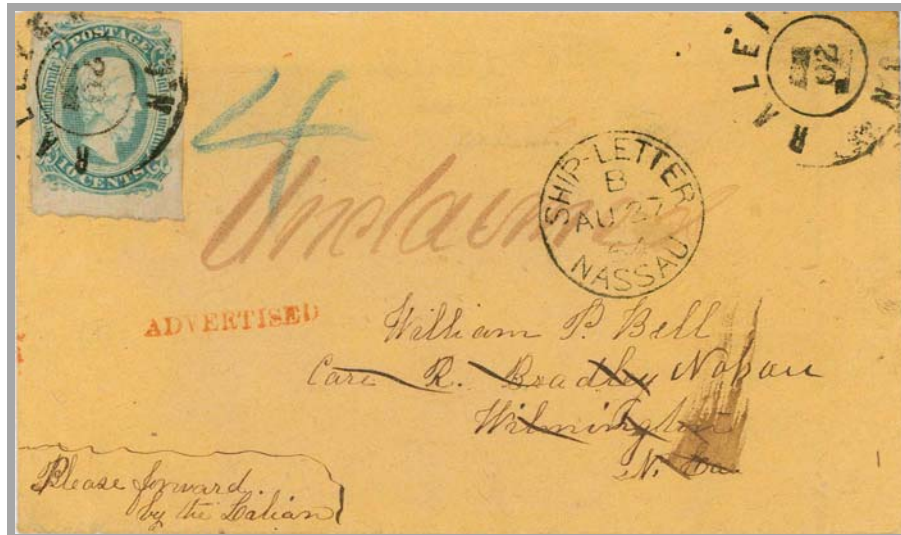 POSTAGE
10 CENTS
RALEI
N
20
RALEI
N
20
4
Unclaimed
SHIP-LETTER
B
AU 27
NASSAU
ADVERTISED
William P. Bell
Care R. Bradley Nassau
Wilmington
N. Ca.
Please forward
by the Lilian